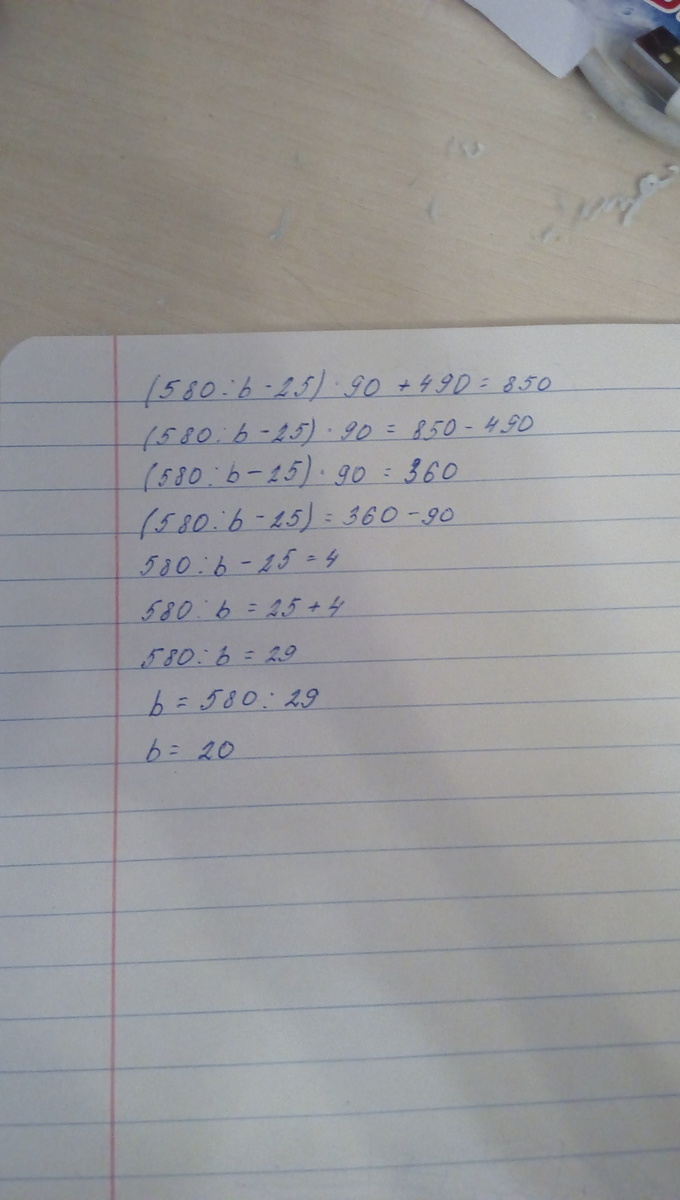 (580:b-25)·90+490=850
(580:b-25)·90=850-490
(580:b-25)·90=360
(580:b-25)=360-90
580:b-25=4
580:b=25+4
580:b=29
b=580:29
b=20